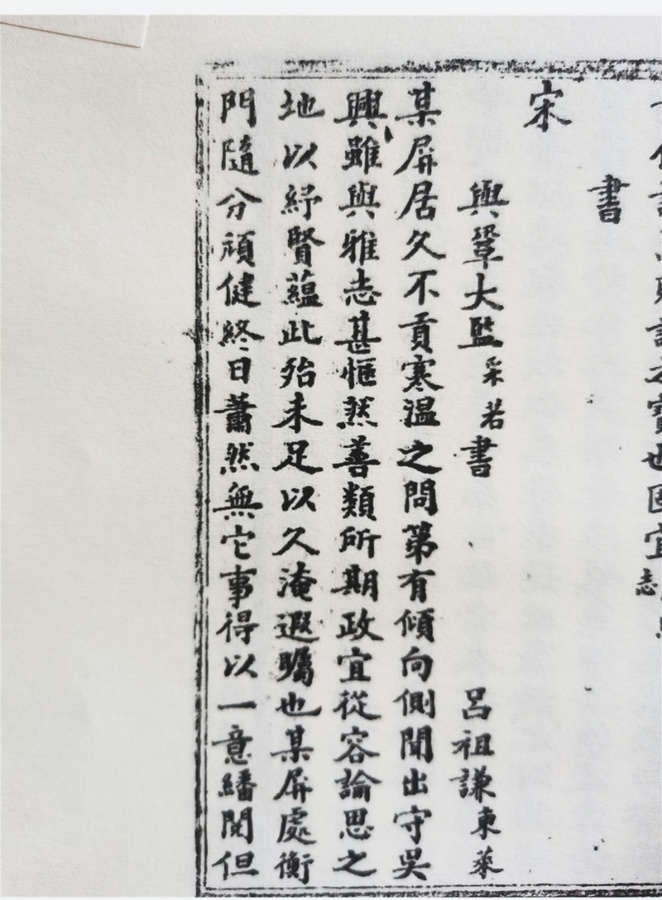 也 志
書
宋
與鞏大監采若書 呂祖謙東萊
某屏居久不貢寒溫之問第有傾向側聞出守吳
興雖與雅志甚愜然善類所期政宜從容論思之
地以紓賢蘊此殆未足以久淹遐矚也某屏處衡
門隨分頑健終日蕭然無它事得以一意繙閱但